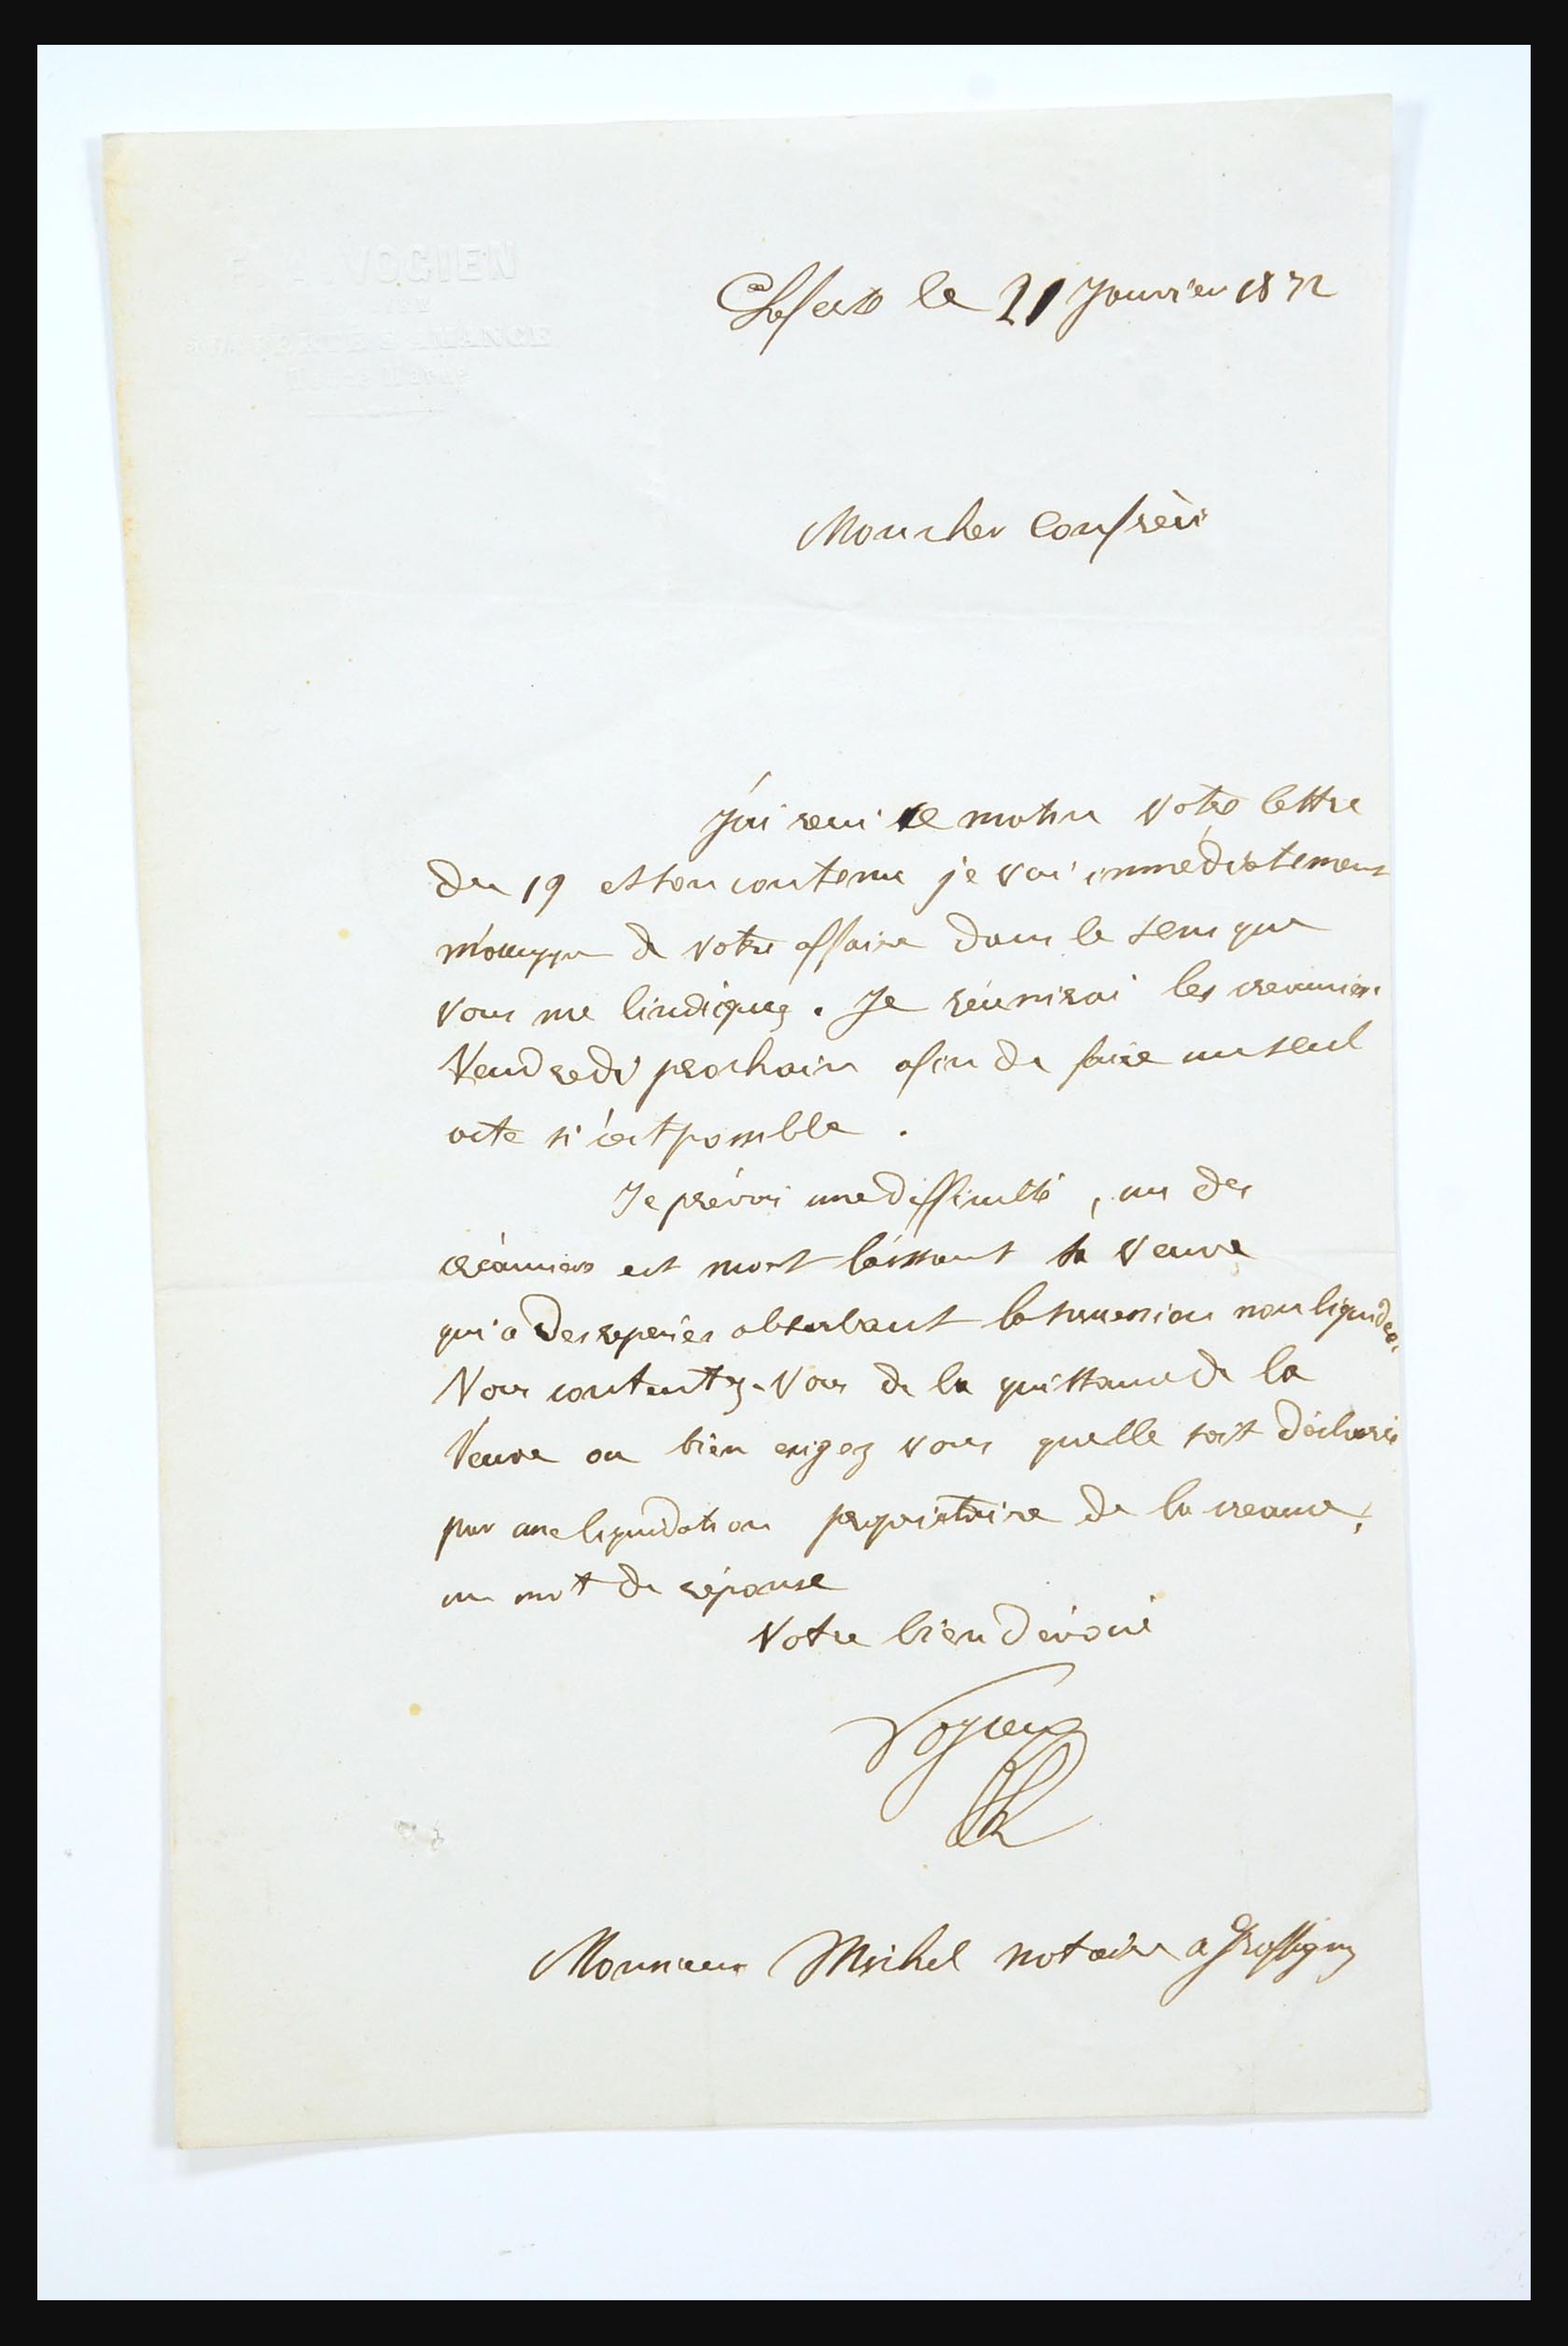 VOGIEN
A LA FERTÉ S AMANCE
Haute Marne
Laferté le 21 Janvier 1872
Mon cher Confrère
J'ai recu ce matin votre lettre
du 19 et son contenu je vai immédiatement
m'occupper de votre affaire dans le sens que
vous me lindiquez. Je réunirai les creanciers
Vendredi prochain afin de faire un seul
acte si c'est possible.
Je prévois une difficulté, un des
créanciers est mort laissant sa veuve
qui a des reprises absorbant la succession non liquidée,
Vous contentez-vous de la quittance de la
Veuve ou bien exigez vous quelle soit déclarée
par une liquidation propriétaire de la creance,
un mot de réponse
Votre bien dévoué
Vogien
Monsieur Michel notaire a